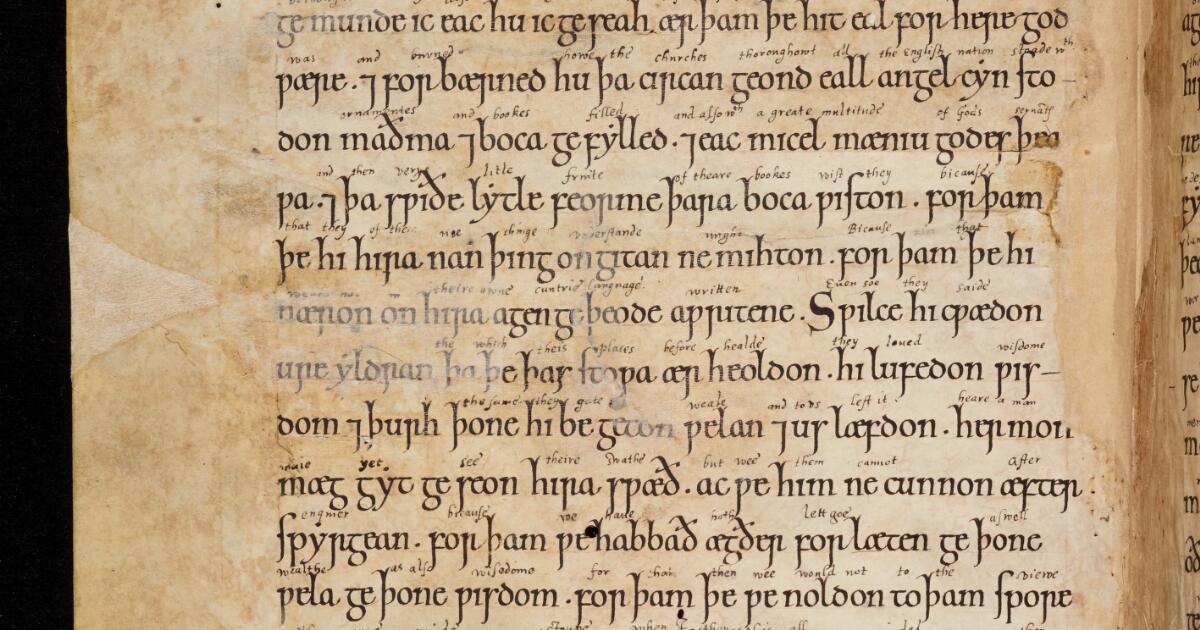 ge munde ic eac hu ic ge seah ær þam þe hit eal for here god
was and burned howe the churches thoroughowt all the English nation stoode wth
wære · ⁊ for bærned hu þa circan geond eall angel cyn sto
ornamentes and bookes filled and also wth a greate multitude of Gods servants
don maðma ⁊ boca ge fylled · ⁊ eac micel mæniu godes þeo
and then very litle fruite of theare bookes wist they bicause
wa · ⁊ þa swiðe lytle feorme þara boca wiston · for þam
that they of them noe thinge understande might Bicause that
þe hi hira nan þing ongitan ne mihton · for þam þe hi
theire owne cuntrie language written Even soe they saide
næron on hira agen ge þeode awritene · Swilce hi cwædon
the which theis places before healde they loved wisdome
ure yldran þa þe þas stowa ær heoldon · hi lufedon wis
the same they gate weale and to vs left it heare a man
dom ⁊ þurh þone hi be geton welan ⁊ us læfdon · her mon
maie yet see theire swathe but wee them cannot After
mæg gyt ge seon hira swæð · ac we him ne cunnon æfter
bicause we have both lett goe aswell
spyrgean · for þam we habbað ægðer for læten ge þone
wealthe as also wisedome for that then wee would not to the
wela ge þone wisdom · for þam þe we noldon to þam spore